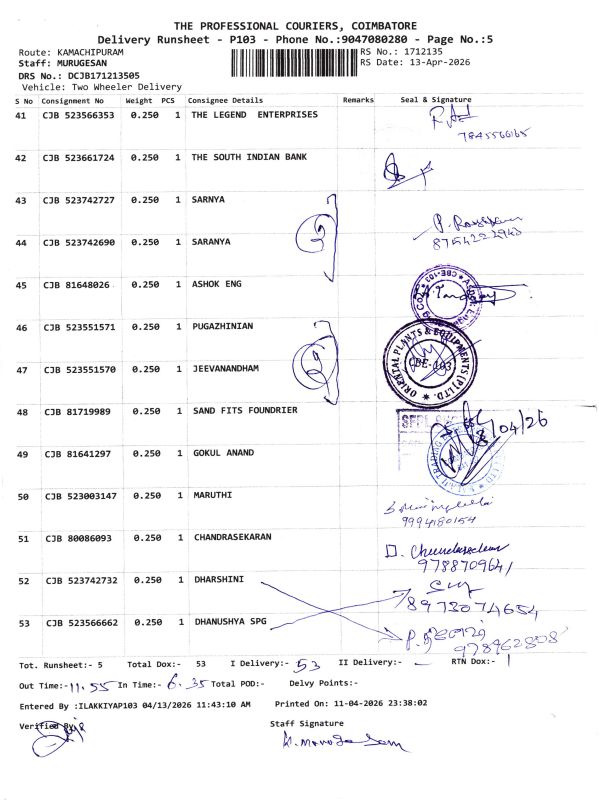 THE PROFESSIONAL COURIERS, COIMBATORE
Delivery Runsheet - P103 - Phone No.:9047080280 - Page No.:5
Route: KAMACHIPURAM RS No.: 1712135
Staff: MURUGESAN RS Date: 13-Apr-2026
DRS No.: DCJB171213505
Vehicle: Two Wheeler Delivery
S No Consignment No Weight PCS Consignee Details Remarks Seal & Signature
41 CJB 523566353 0.250 1 THE LEGEND ENTERPRISES
7845566165
42 CJB 523661724 0.250 1 THE SOUTH INDIAN BANK
43 CJB 523742727 0.250 1 SARNYA
44 CJB 523742690 0.250 1 SARANYA
8754222943
45 CJB 81648026 0.250 1 ASHOK ENG
CBE-103
46 CJB 523551571 0.250 1 PUGAZHINIAN
ORIENTAL PLANTS & EQUIPMENTS (P) LTD.
CBE-103
47 CJB 523551570 0.250 1 JEEVANANDHAM
48 CJB 81719989 0.250 1 SAND FITS FOUNDRIER
/04/26
49 CJB 81641297 0.250 1 GOKUL ANAND
50 CJB 523003147 0.250 1 MARUTHI
9994180154
51 CJB 80086093 0.250 1 CHANDRASEKARAN
D. Chandrasekaran
9788709641
52 CJB 523742732 0.250 1 DHARSHINI
8973074654
53 CJB 523566662 0.250 1 DHANUSHYA SPG
Tot. Runsheet:- 5 Total Dox:- 53 I Delivery:- 53 II Delivery:- RTN Dox:-
Out Time:- 11.55 In Time:- 6.35 Total POD:- Delvy Points:-
Entered By :ILAKKIYAP103 04/13/2026 11:43:10 AM Printed On: 11-04-2026 23:38:02
Verified By: Staff Signature